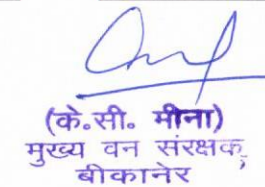 (के.सी. मीना)
मुख्य वन संरक्षक,
बीकानेर